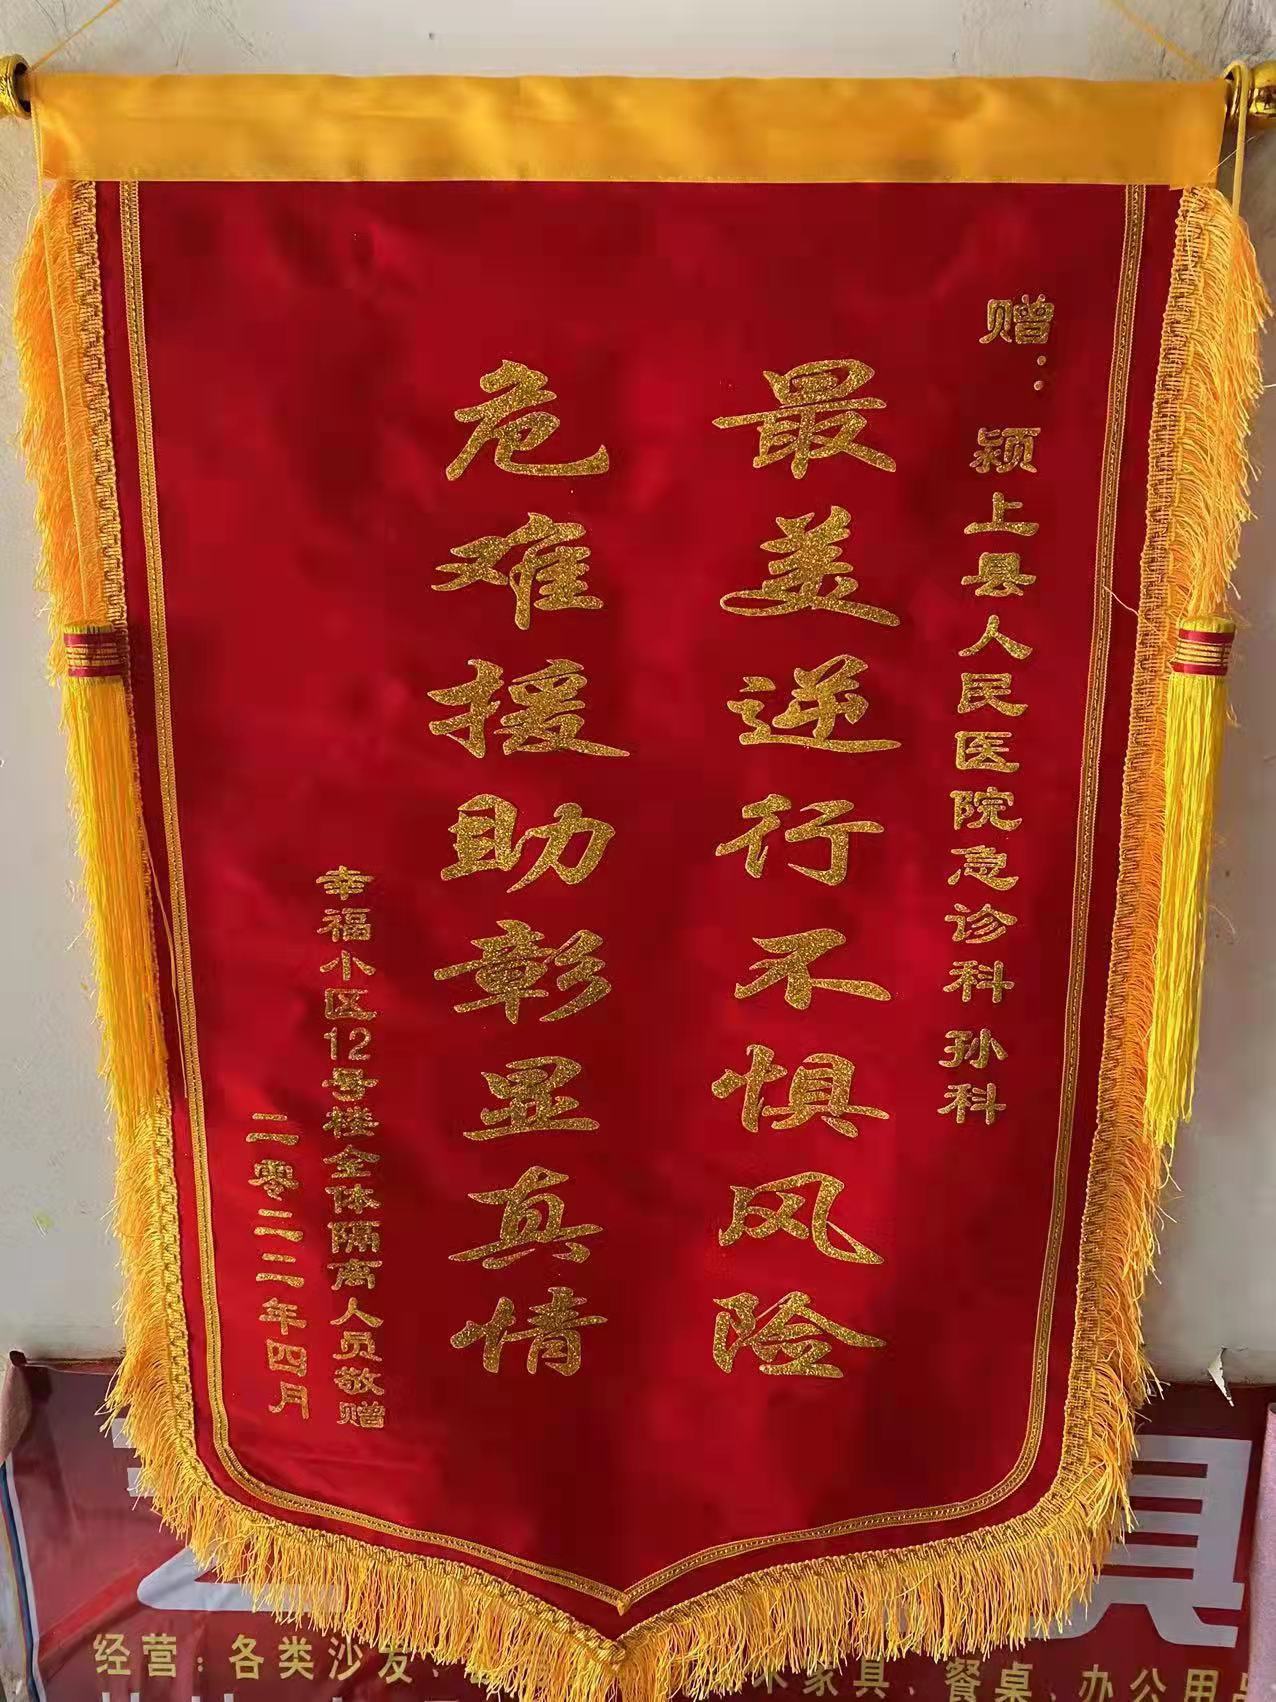 赠：颍上县人民医院急诊科孙科
最美逆行不惧风险
危难援助彰显真情
幸福小区12号楼全体隔离人员敬赠
二零二二年四月
经营：各类沙发、
家具、餐桌、办公用